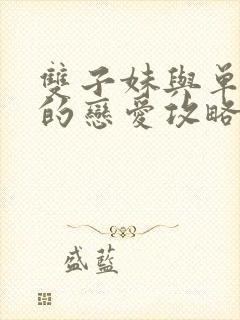 雙子妹與單
的戀愛攻略
盛藍